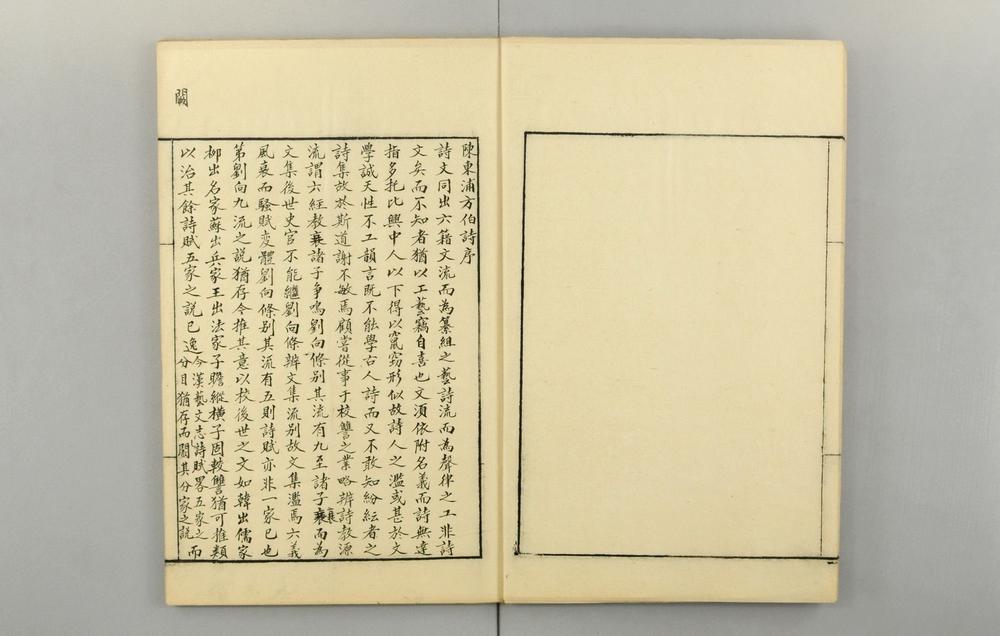 陳東浦方伯詩序
詩文同出六籍文流而為纂組之藝詩流而為聲律之工非詩
文矣而不知者猶以工藝竊自喜也文須依附名義而詩無達
指多托比興中人以下得以竄竊形似故詩人之濫或甚於文
學誠天性不工韻言既不能學古人詩而又不敢知紛紜者之
詩集故於斯道謝不敏焉顧嘗從事于校讐之業略辨詩教源
流謂六經教衰諸子爭鳴劉向條别其流有九至諸子衰而為
衰
文集後世史官不能繼劉向條辨文集流別故文集濫焉六義
風衰而騷賦变體劉向條别其流有五則詩賦亦非一家已也
第劉向九流之説猶存今推其意以校後世之文如韓出儒家
柳出名家蘇出兵家王出法家子瞻縱橫子固較讐猶可推類
以治其餘詩賦五家之説已逸今漢藝文志詩賦畧五家之分目猶存而闕其分家之説而
闕